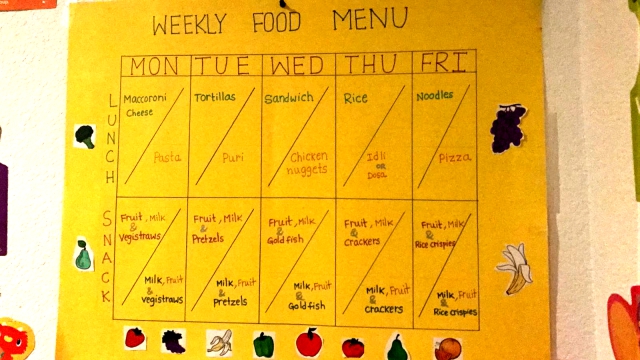 WEEKLY FOOD MENU
MON TUE WED THU FRI
LUNCH
Maccoroni Cheese
Pasta
Tortillas
Puri
Sandwich
Chicken nuggets
Rice
Idli
OR
Dosa
Noodles
Pizza
SNACK
Fruit, Milk
&
Vegistraws
Milk, Fruit
&
vegistraws
Fruit, Milk
&
Pretzels
Milk, Fruit
&
pretzels
Fruit, Milk
&
Goldfish
Milk, Fruit
&
Goldfish
Fruit, Milk
&
crackers
Milk, Fruit
&
crackers
Fruit, Milk
&
Rice crispies
Milk, Fruit
&
Rice crispies